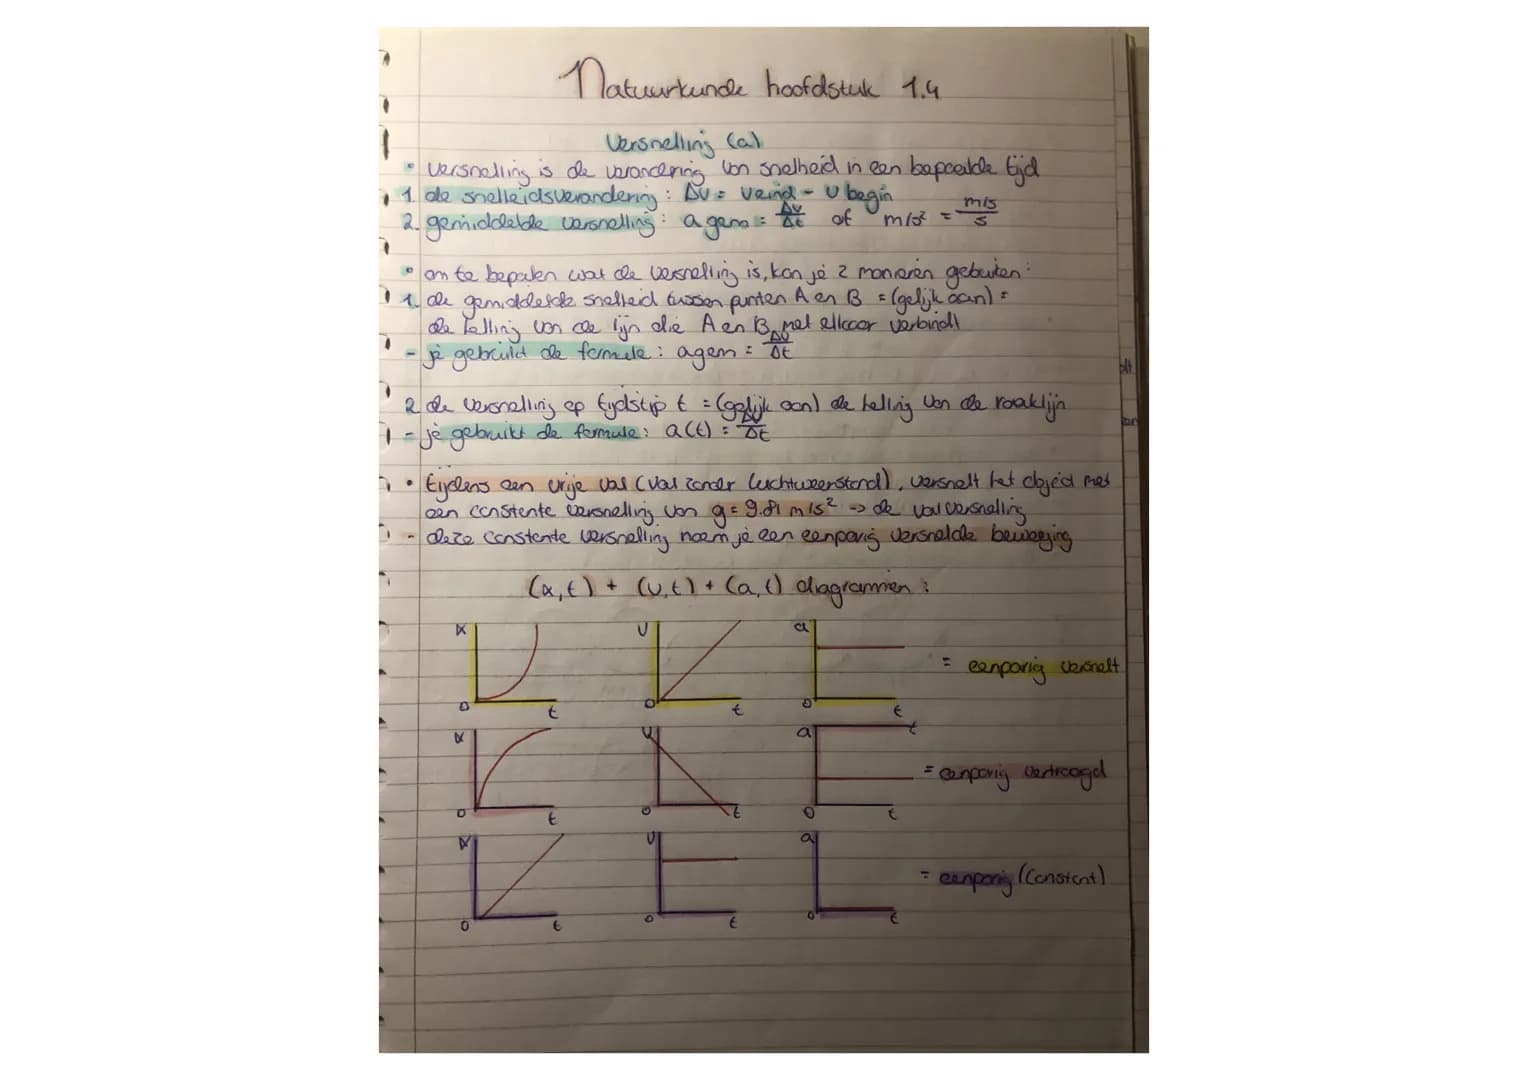 Natuurkunde hoofdstuk 1.4
Versnelling (a)
• versnelling is de verandering van snelheid in een bepaalde tijd
1. de snelheidsverandering: Δv = v eind - v begin
2. gemiddelde versnelling: a gem = Δv/Δt of m/s² = m/s / s
• om te bepalen wat de versnelling is, kan je 2 manieren gebruiken:
1. de gemiddelde snelheid tussen punten A en B = (gelijk aan) =
de helling van de lijn die A en B met elkaar verbindt
- je gebruikt de formule: a gem = Δv/Δt
2. de versnelling op tijdstip t = (gelijk aan) de helling van de raaklijn
- je gebruikt de formule: a(t) = Δv/Δt
• tijdens een vrije val (val zonder luchtweerstand), versnelt het object met
een constante versnelling van g = 9.81 m/s² -> de valversnelling
- deze constante versnelling noem je een eenparig versnelde beweging
(x,t) + (v,t) + (a,t) diagrammen:
x v a
= eenparig versnelt
0 t 0 t 0 t
x v a t
= eenparig vertraagd
0 t 0 t 0 t
x v a
= eenparig (constant)
0 t 0 t 0 t